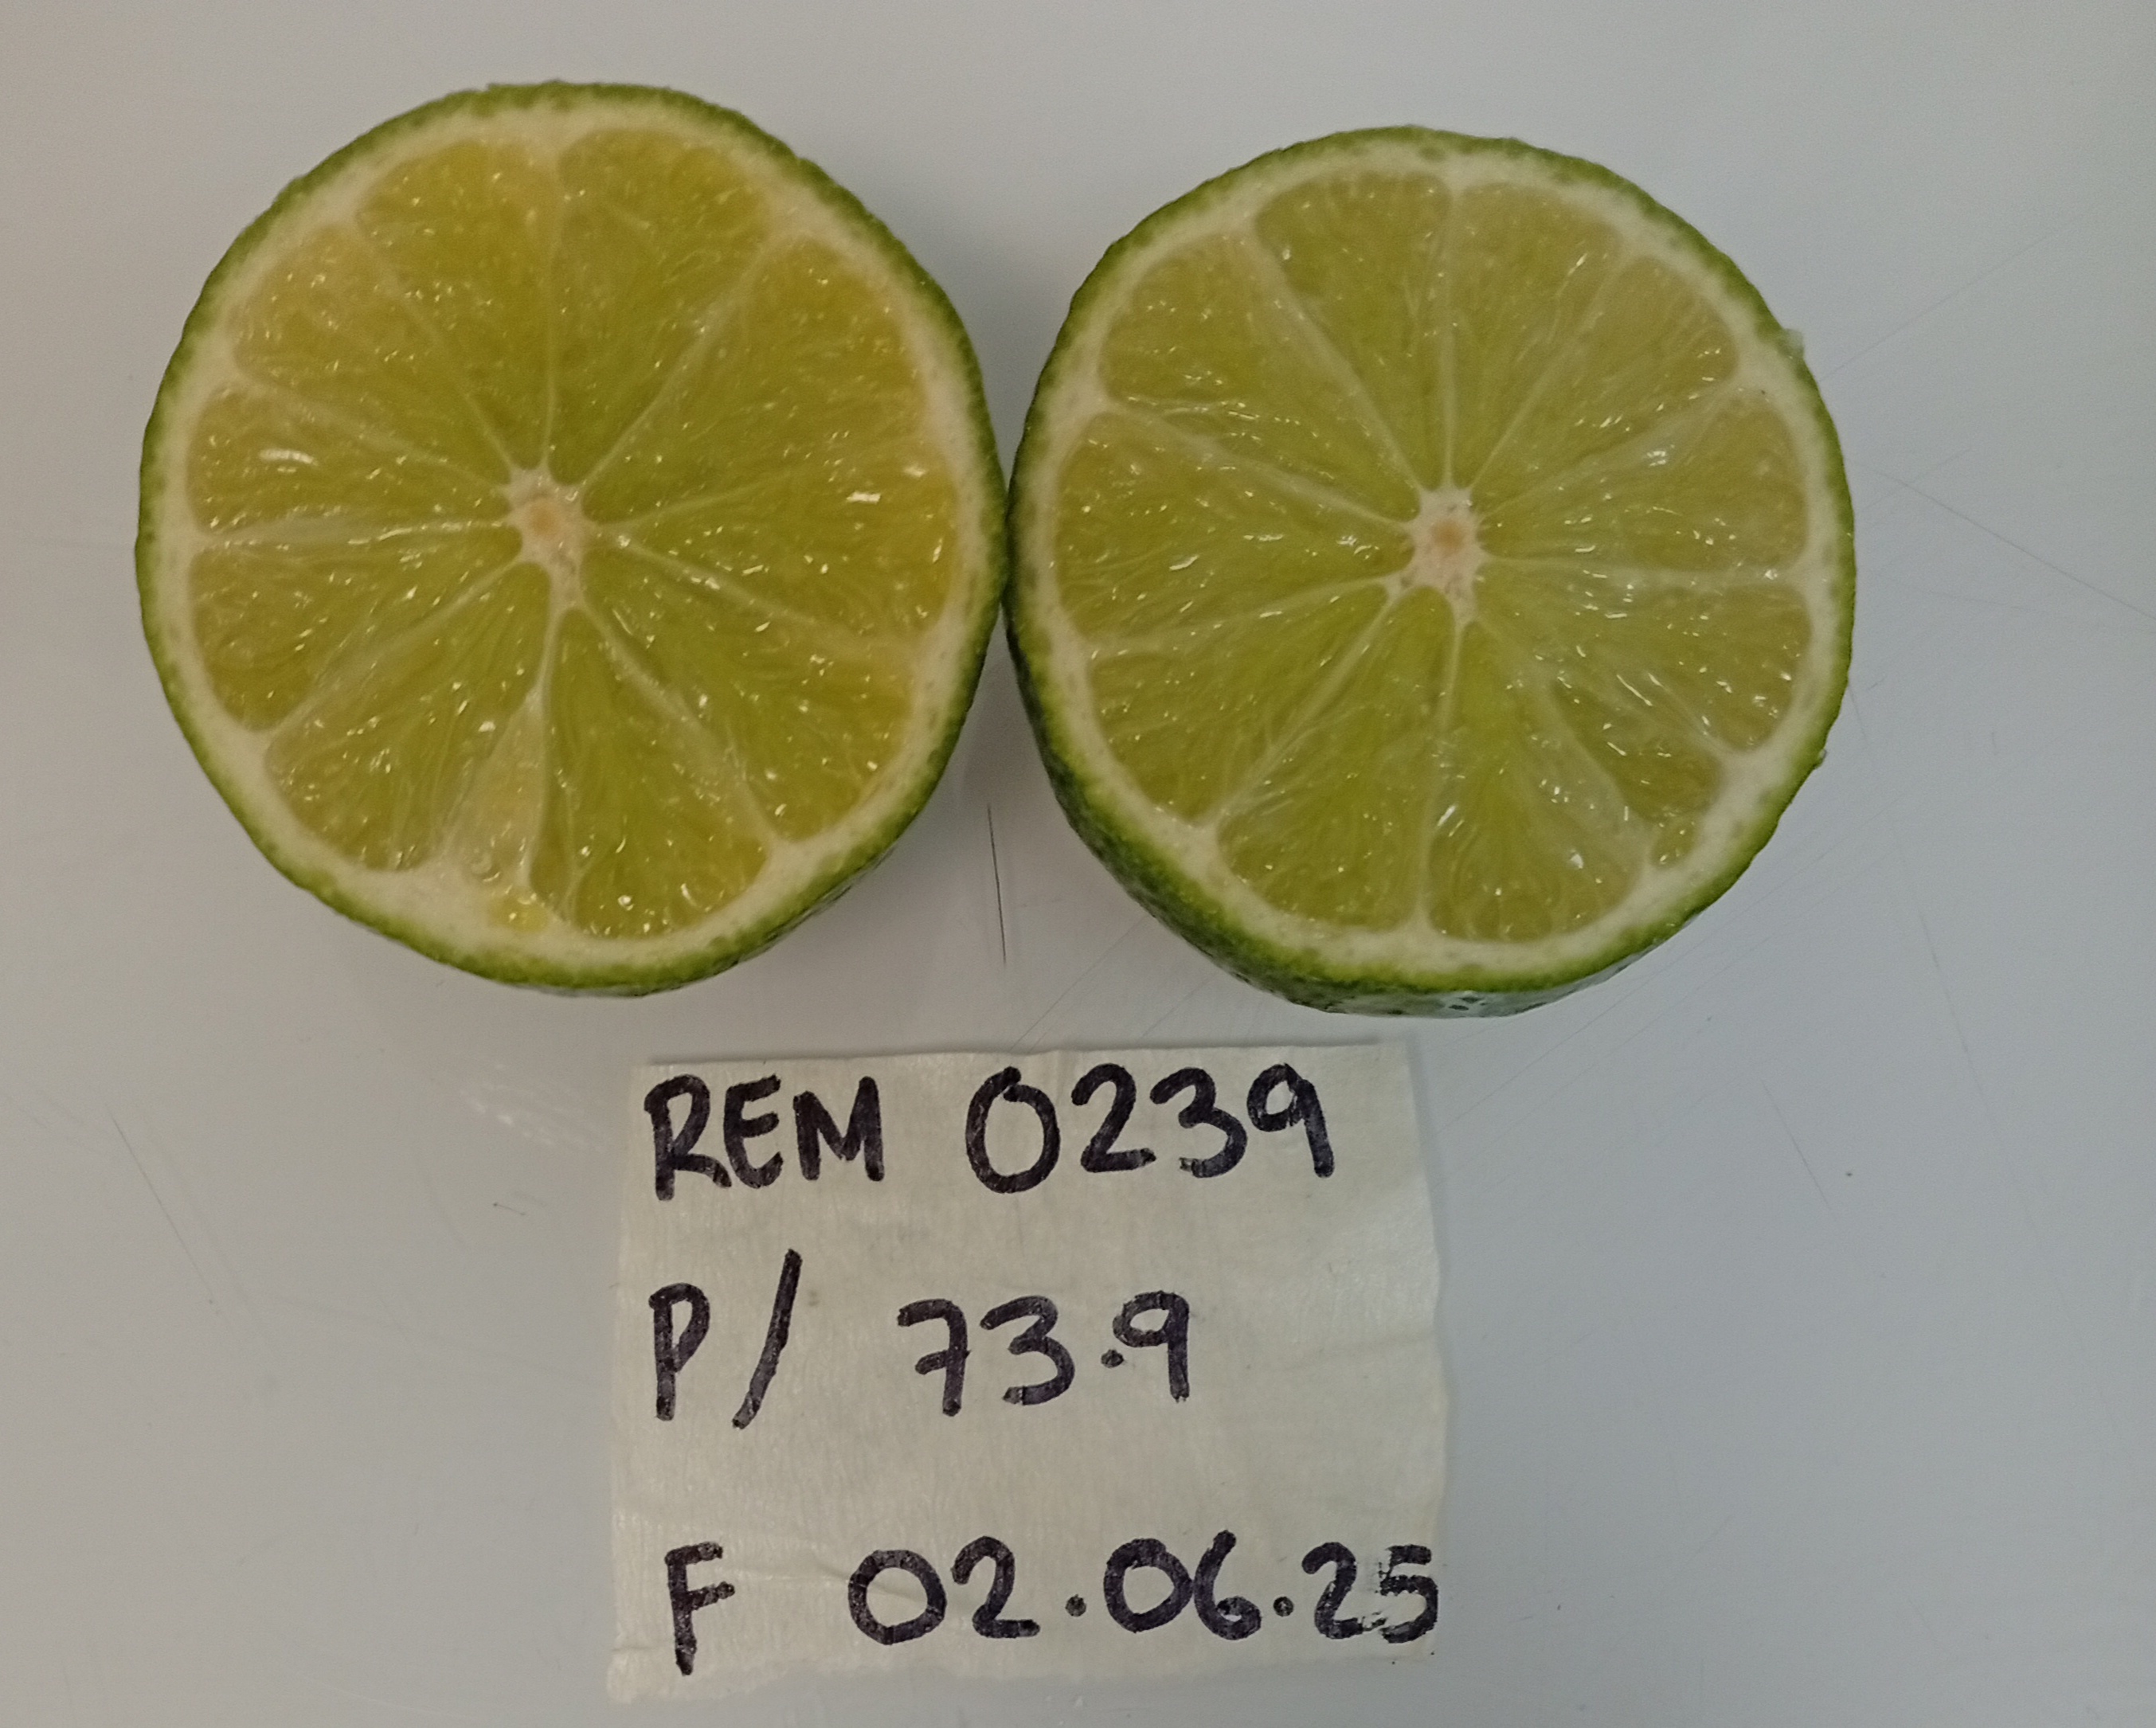 REM 0239
P/ 73.9
F 02.06.25